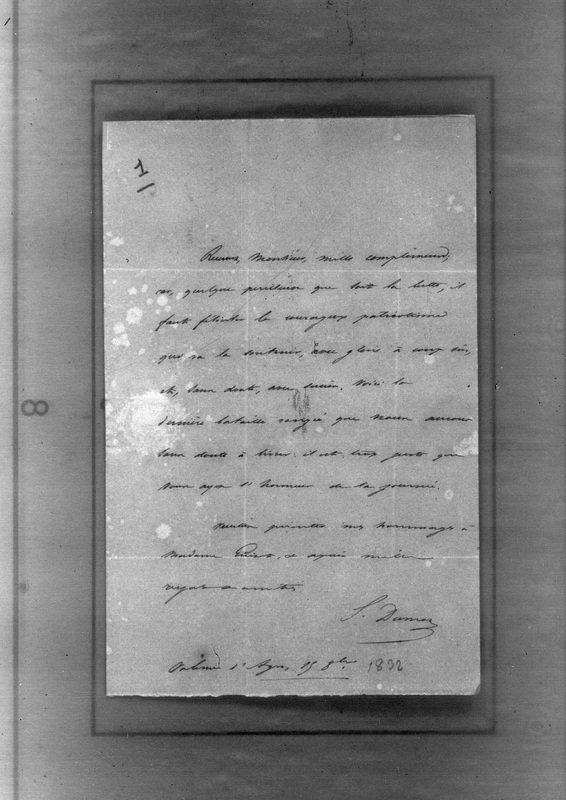 1
8
Recevez, Monsieur, mille complimens,
car, quelque périlleuse que soit la lutte, il
faut féliciter le courageux patriotisme
qui va la soutenir, avec gloire à coup sûr,
et, sans doute, avec succès. Voici la
dernière bataille rangée que nous aurons
sans doute à livrer: il est très juste que
vous ayez l'honneur de la journée.
Veuillez présenter mes hommages à
Madame, et agréer mille
S. Dumon
15 8bre 1832